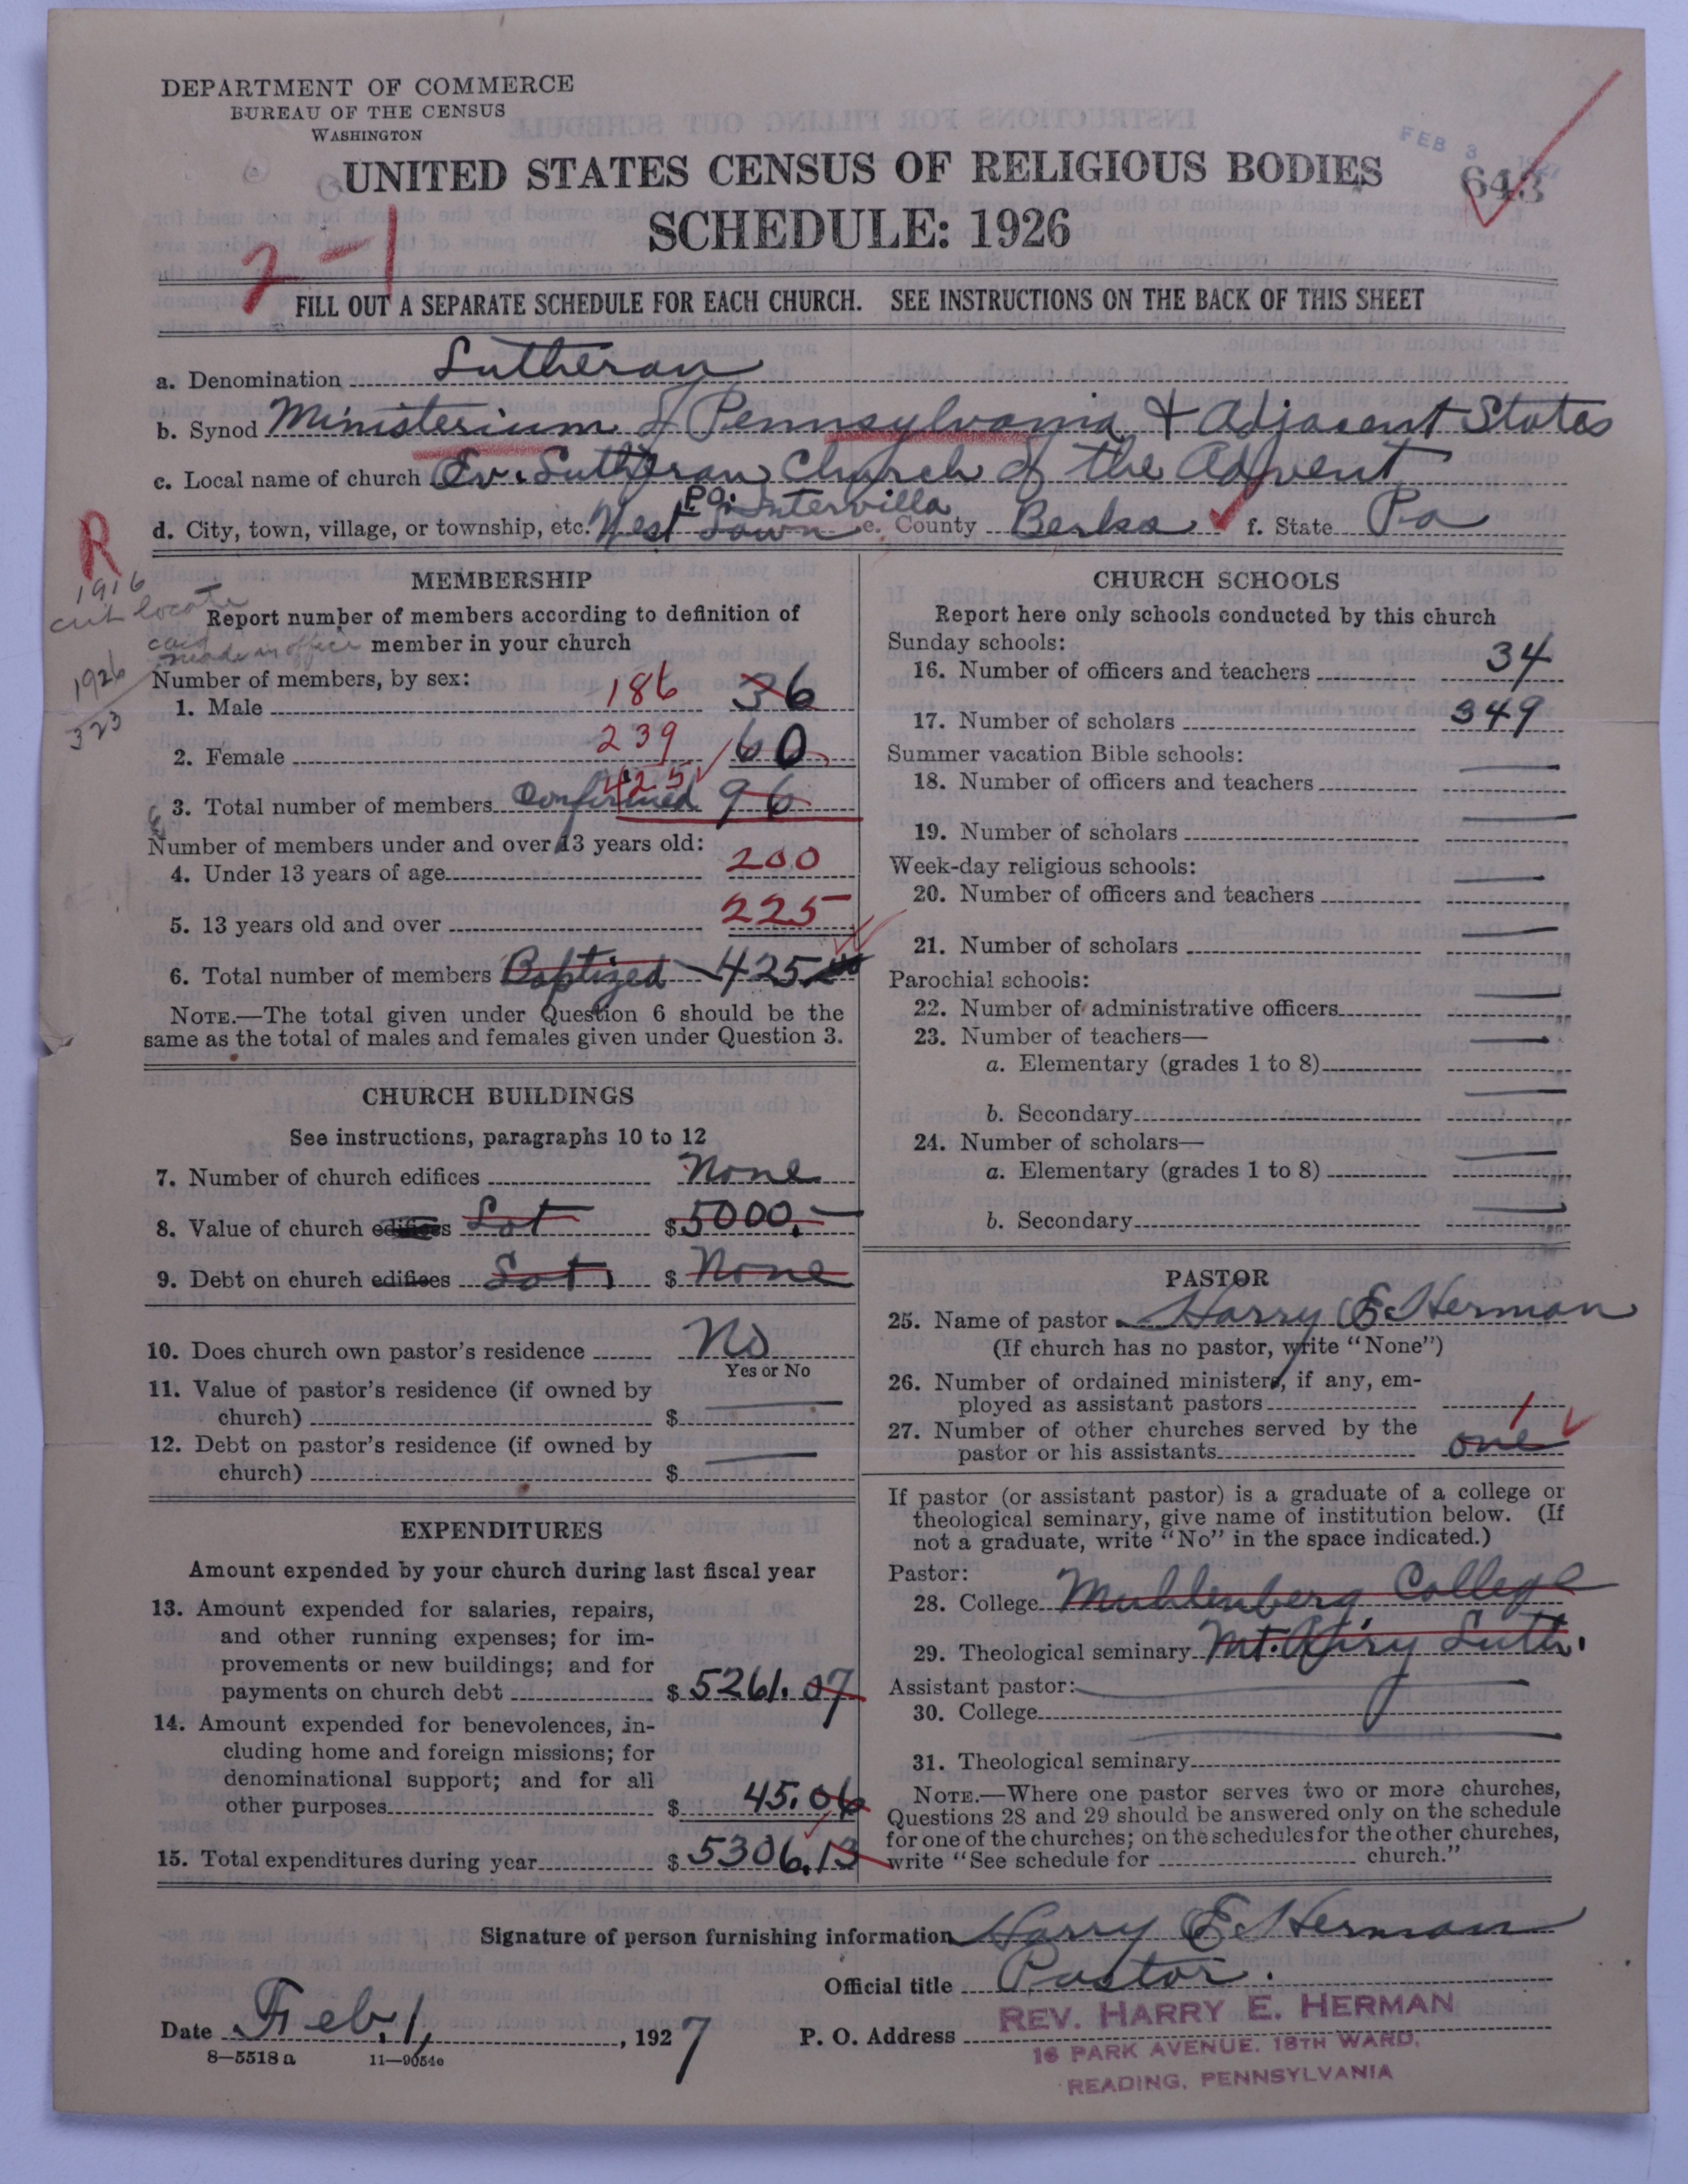 DEPARTMENT OF COMMERCE
BUREAU OF THE CENSUS
WASHINGTON
FEB 3 1927
UNITED STATES CENSUS OF RELIGIOUS BODIES
643
SCHEDULE: 1926
2-1
FILL OUT A SEPARATE SCHEDULE FOR EACH CHURCH. SEE INSTRUCTIONS ON THE BACK OF THIS SHEET
a. Denomination Lutheran
b. Synod Ministerium of Pennsylvania & Adjacent States
c. Local name of church Ev. Lutheran Church of the Advent
P.O. Intervilla
d. City, town, village, or township, etc. West Lawn e. County Berks f. State Pa
R
1916
card made in office
1926
323
MEMBERSHIP
Report number of members according to definition of member in your church
Number of members, by sex:
1. Male 186 36
2. Female 239 60
425
3. Total number of members Confirmed 96
Number of members under and over 13 years old:
4. Under 13 years of age 200
5. 13 years old and over 225
6. Total number of members Baptized 425
NOTE.—The total given under Question 6 should be the
same as the total of males and females given under Question 3.
CHURCH BUILDINGS
See instructions, paragraphs 10 to 12
7. Number of church edifices None
8. Value of church edifices Lot $ 5000.—
9. Debt on church edifices Lot $ None
10. Does church own pastor's residence No
Yes or No
11. Value of pastor's residence (if owned by
church) $ —
12. Debt on pastor's residence (if owned by
church) $ —
EXPENDITURES
Amount expended by your church during last fiscal year
13. Amount expended for salaries, repairs,
and other running expenses; for im-
provements or new buildings; and for
payments on church debt $ 5261.07
14. Amount expended for benevolences, in-
cluding home and foreign missions; for
denominational support; and for all
other purposes $ 45.06
15. Total expenditures during year $ 5306.13
CHURCH SCHOOLS
Report here only schools conducted by this church
Sunday schools:
16. Number of officers and teachers 34
17. Number of scholars 349
Summer vacation Bible schools:
18. Number of officers and teachers —
19. Number of scholars —
Week-day religious schools:
20. Number of officers and teachers —
21. Number of scholars —
Parochial schools:
22. Number of administrative officers —
23. Number of teachers—
a. Elementary (grades 1 to 8) —
b. Secondary —
24. Number of scholars—
a. Elementary (grades 1 to 8) —
b. Secondary —
PASTOR
25. Name of pastor Harry E. Herman
(If church has no pastor, write "None")
26. Number of ordained ministers, if any, em-
ployed as assistant pastors
27. Number of other churches served by the 1
pastor or his assistants one
If pastor (or assistant pastor) is a graduate of a college or
theological seminary, give name of institution below. (If
not a graduate, write "No" in the space indicated.)
Pastor:
28. College Muhlenberg College
29. Theological seminary Mt. Airy Luth.
Assistant pastor:
30. College —
31. Theological seminary —
NOTE.—Where one pastor serves two or more churches,
Questions 28 and 29 should be answered only on the schedule
for one of the churches; on the schedules for the other churches,
write "See schedule for church."
Signature of person furnishing information Harry E. Herman
Official title Pastor.
Date Feb. 1, 1927 P. O. Address REV. HARRY E. HERMAN
16 PARK AVENUE, 18TH WARD,
READING, PENNSYLVANIA
8—5518 a 11—9054e